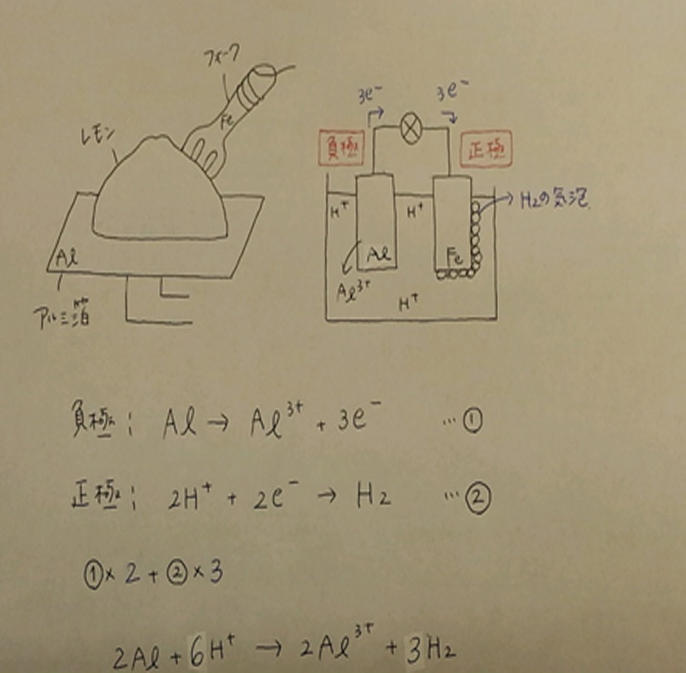 フォーク
レモン
Fe
Al
アルミ箔
3e⁻ 3e⁻
負極 正極
H⁺ H⁺ → H₂の気泡
Al Fe
Al³⁺
H⁺
負極; Al → Al³⁺ + 3e⁻ …①
正極; 2H⁺ + 2e⁻ → H₂ …②
①×2+②×3
2Al + 6H⁺ → 2Al³⁺ + 3H₂